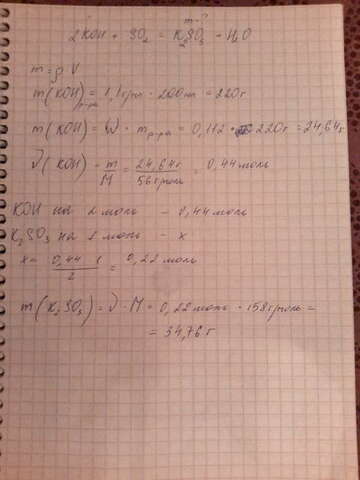 m-?
2KOH + SO₂ = K₂SO₃ + H₂O
m = ρ·V
m(KOH)р-ра = 1,1 гр/мл · 200мл = 220г
m(KOH) = W · mр-ра = 0,112 · 220г = 24,64г
ν(KOH) = m/M = 24,64г/56г/моль = 0,44моль
KOH на 2 моль - 0,44моль
K₂SO₃ на 1 моль - x
x = 0,44 · 1/2 = 0,22 моль
m(K₂SO₃) = ν · M = 0,22моль · 158г/моль =
= 34,76 г